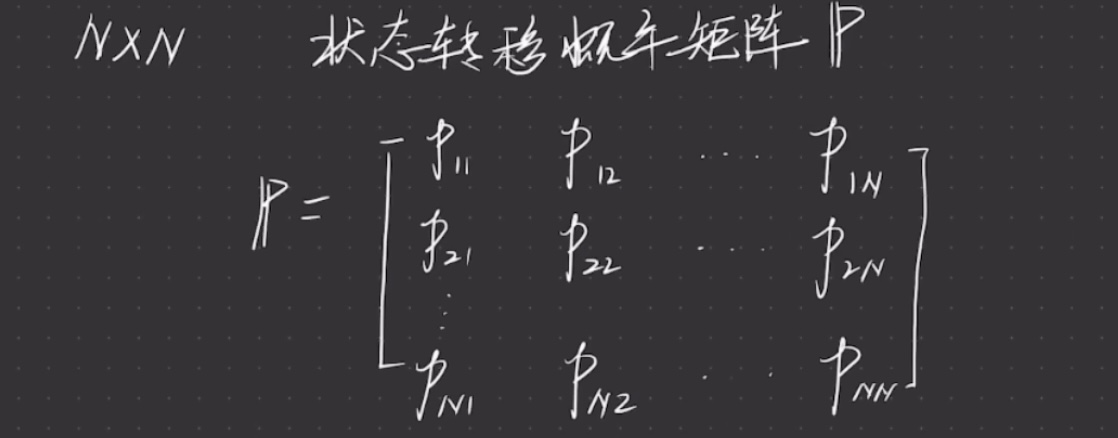 N×N 状态转移概率矩阵 ℙ
p₁₁ p₁₂ ···· p₁N
ℙ =
p₂₁ p₂₂ ···· p₂N
⋮
pN₁ pN₂ ··· pNN